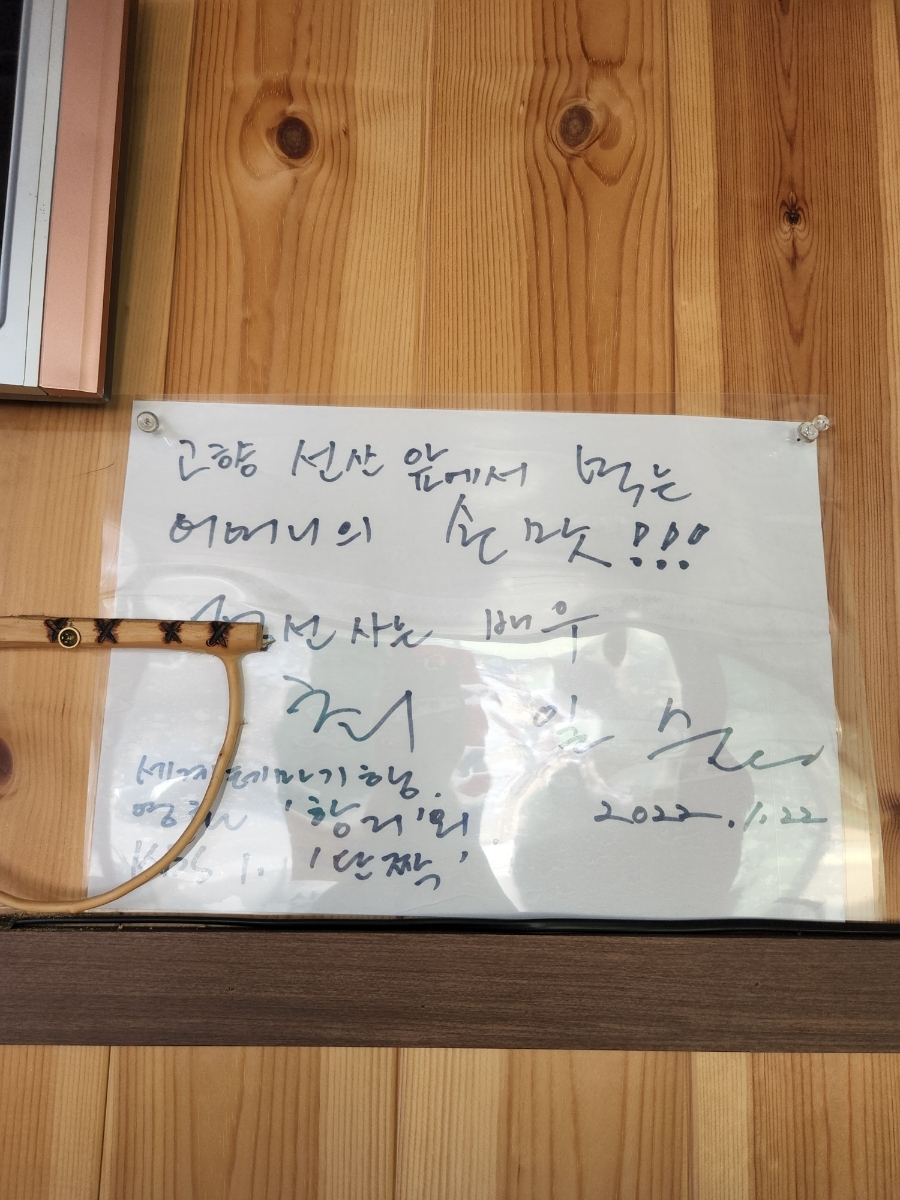 고향 선산 앞에서 먹는
어머니의 손맛!!!
선 사는 배우
최 일 순
세계테마기행.
영화 '황리'외
KBS 1. '단짝'
2022.1.22